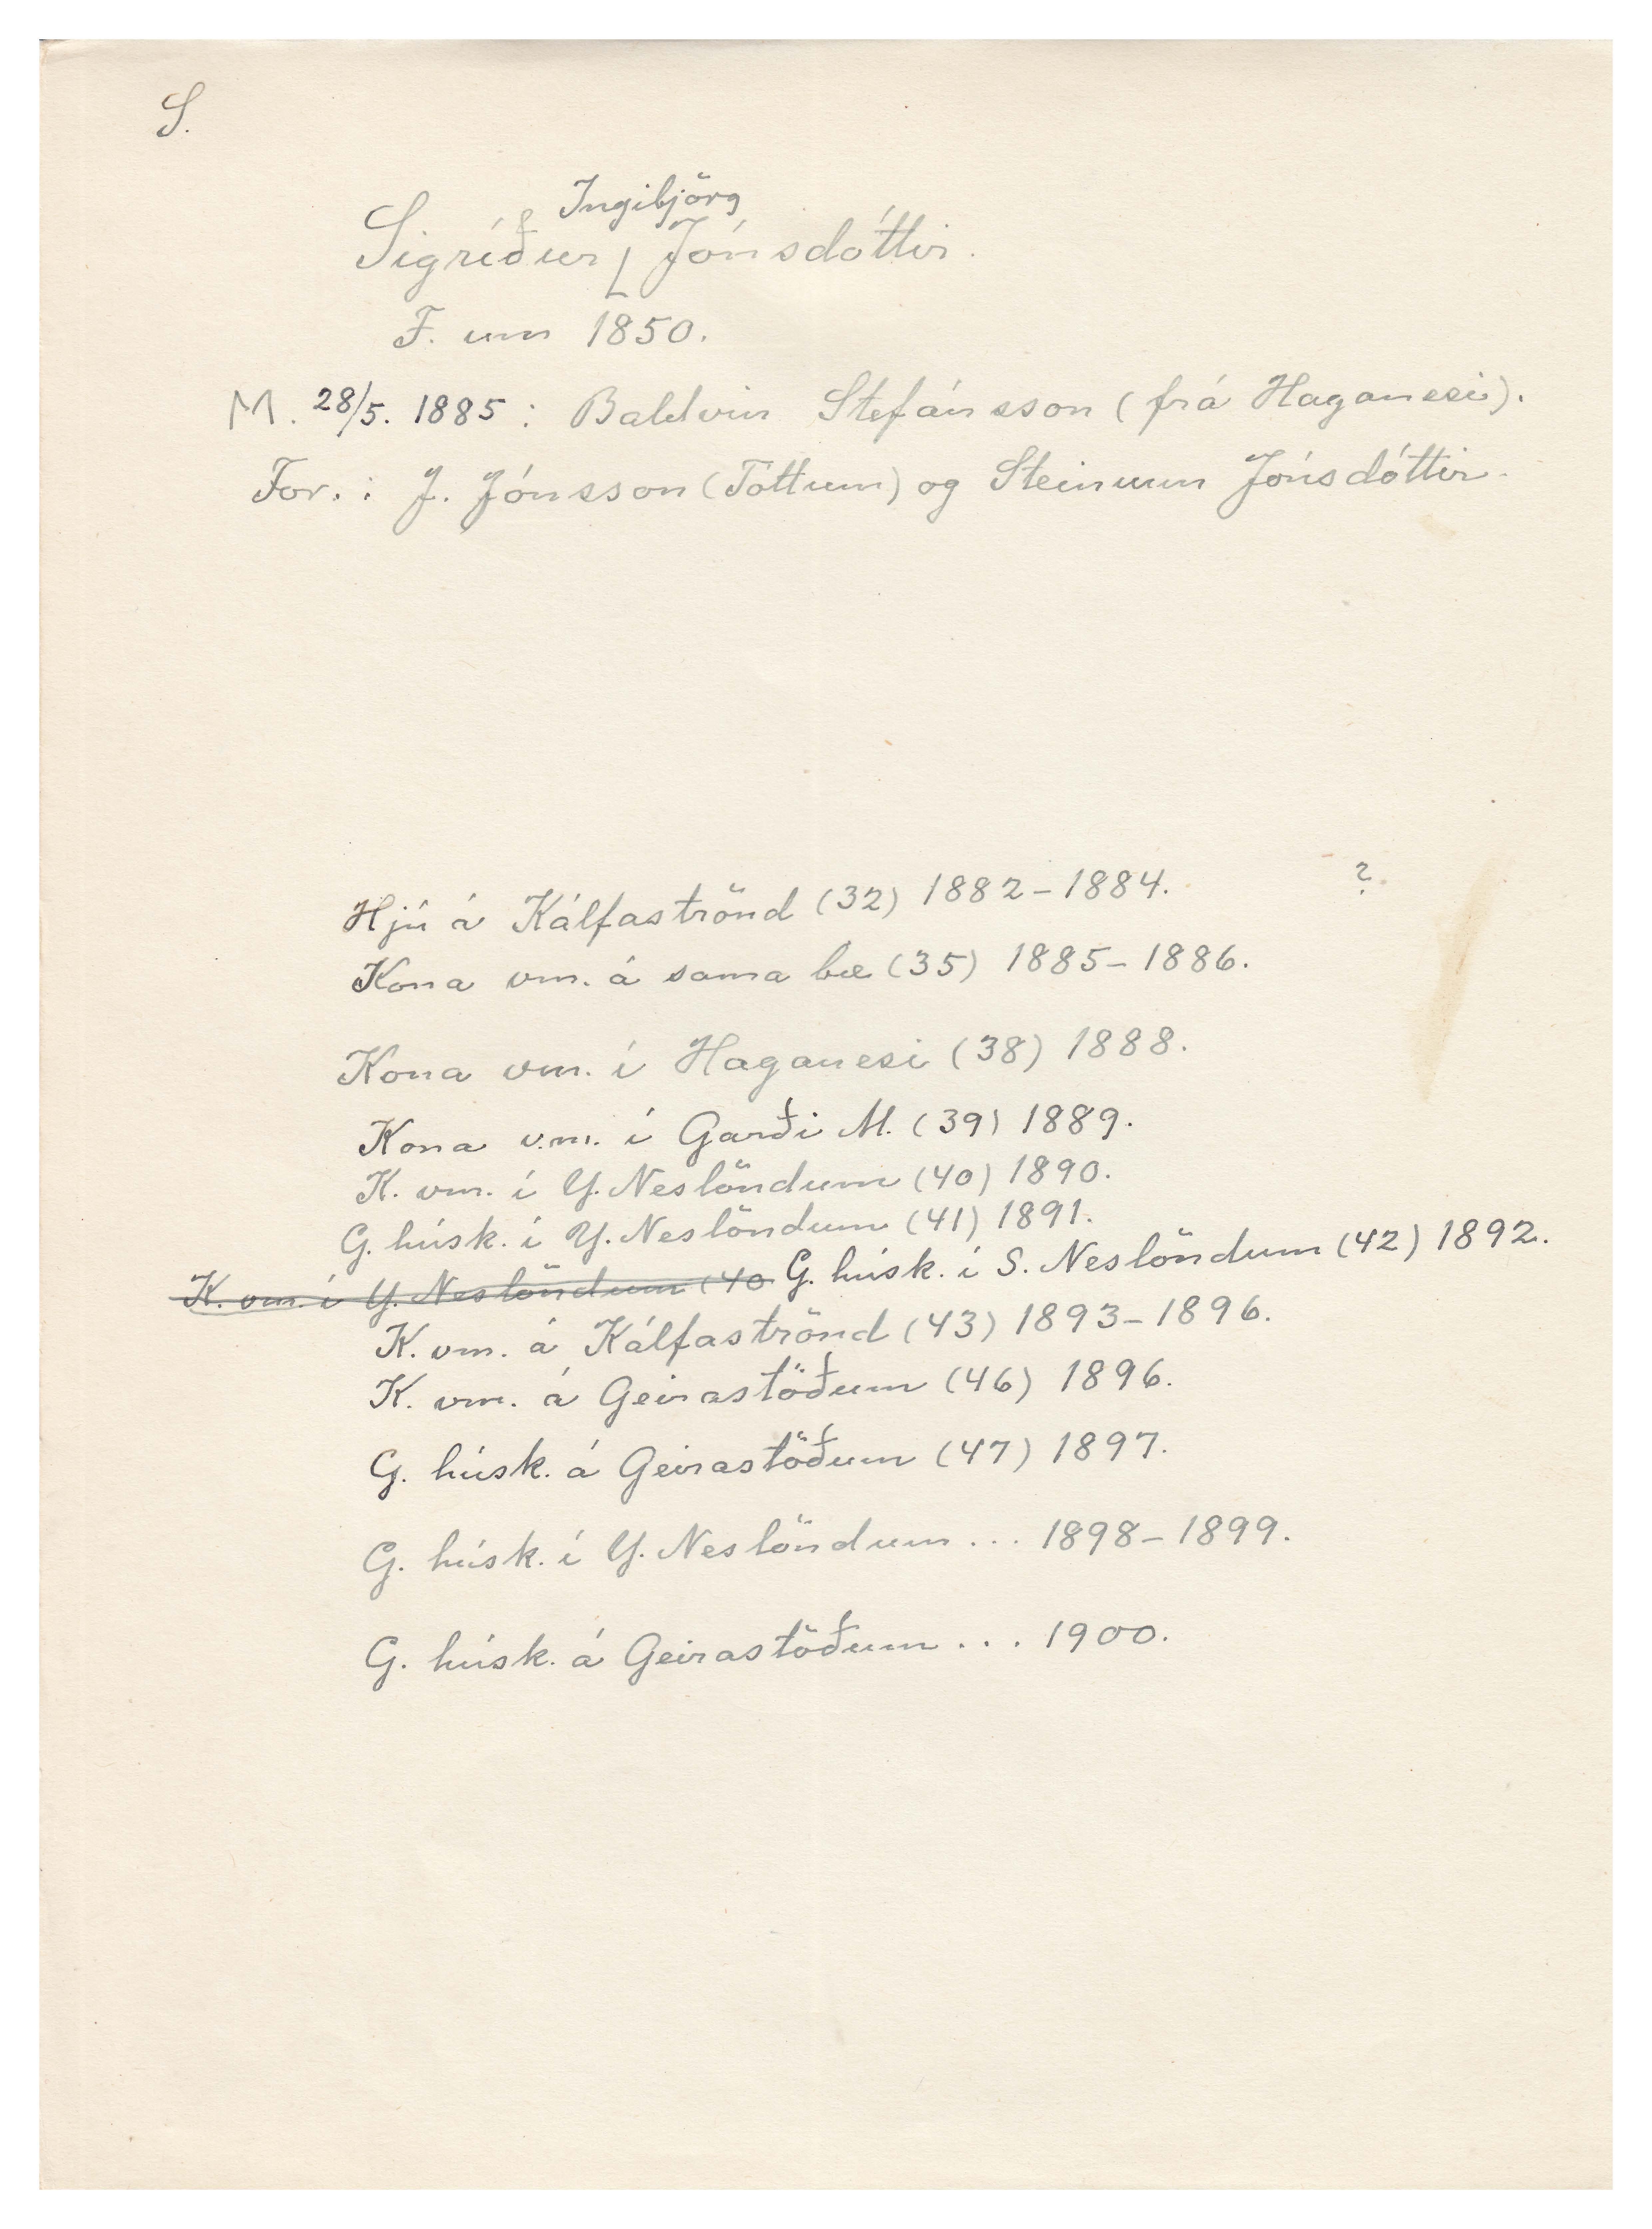 S.
Ingibjörg
Sigríður Jónsdóttir.
F. um 1850.
M. 28/5. 1885: Baldvin Stefánsson (frá Haganesi).
For.: J. Jónsson (Tóttum) og Steinunn Jónsdóttir.
?
Hjú á Kálfaströnd (32) 1882-1884.
Kona vm. á sama bæ (35) 1885-1886.
Kona vm. í Haganesi (38) 1888.
Kona v.m. í Garði M. (39) 1889.
K. vm. í Y. Neslöndum (40) 1890.
G. húsk. í Y. Neslöndum (41) 1891.
K. vm. í Y. Neslöndum (40 G. húsk. í S. Neslöndum (42) 1892.
K. vm. á Kálfaströnd (43) 1893-1896.
K. vm. á Geirastöðum (46) 1896.
G. húsk. á Geirastöðum (47) 1897.
G. húsk. í Y. Neslöndum ... 1898-1899.
G. húsk. á Geirastöðum ... 1900.